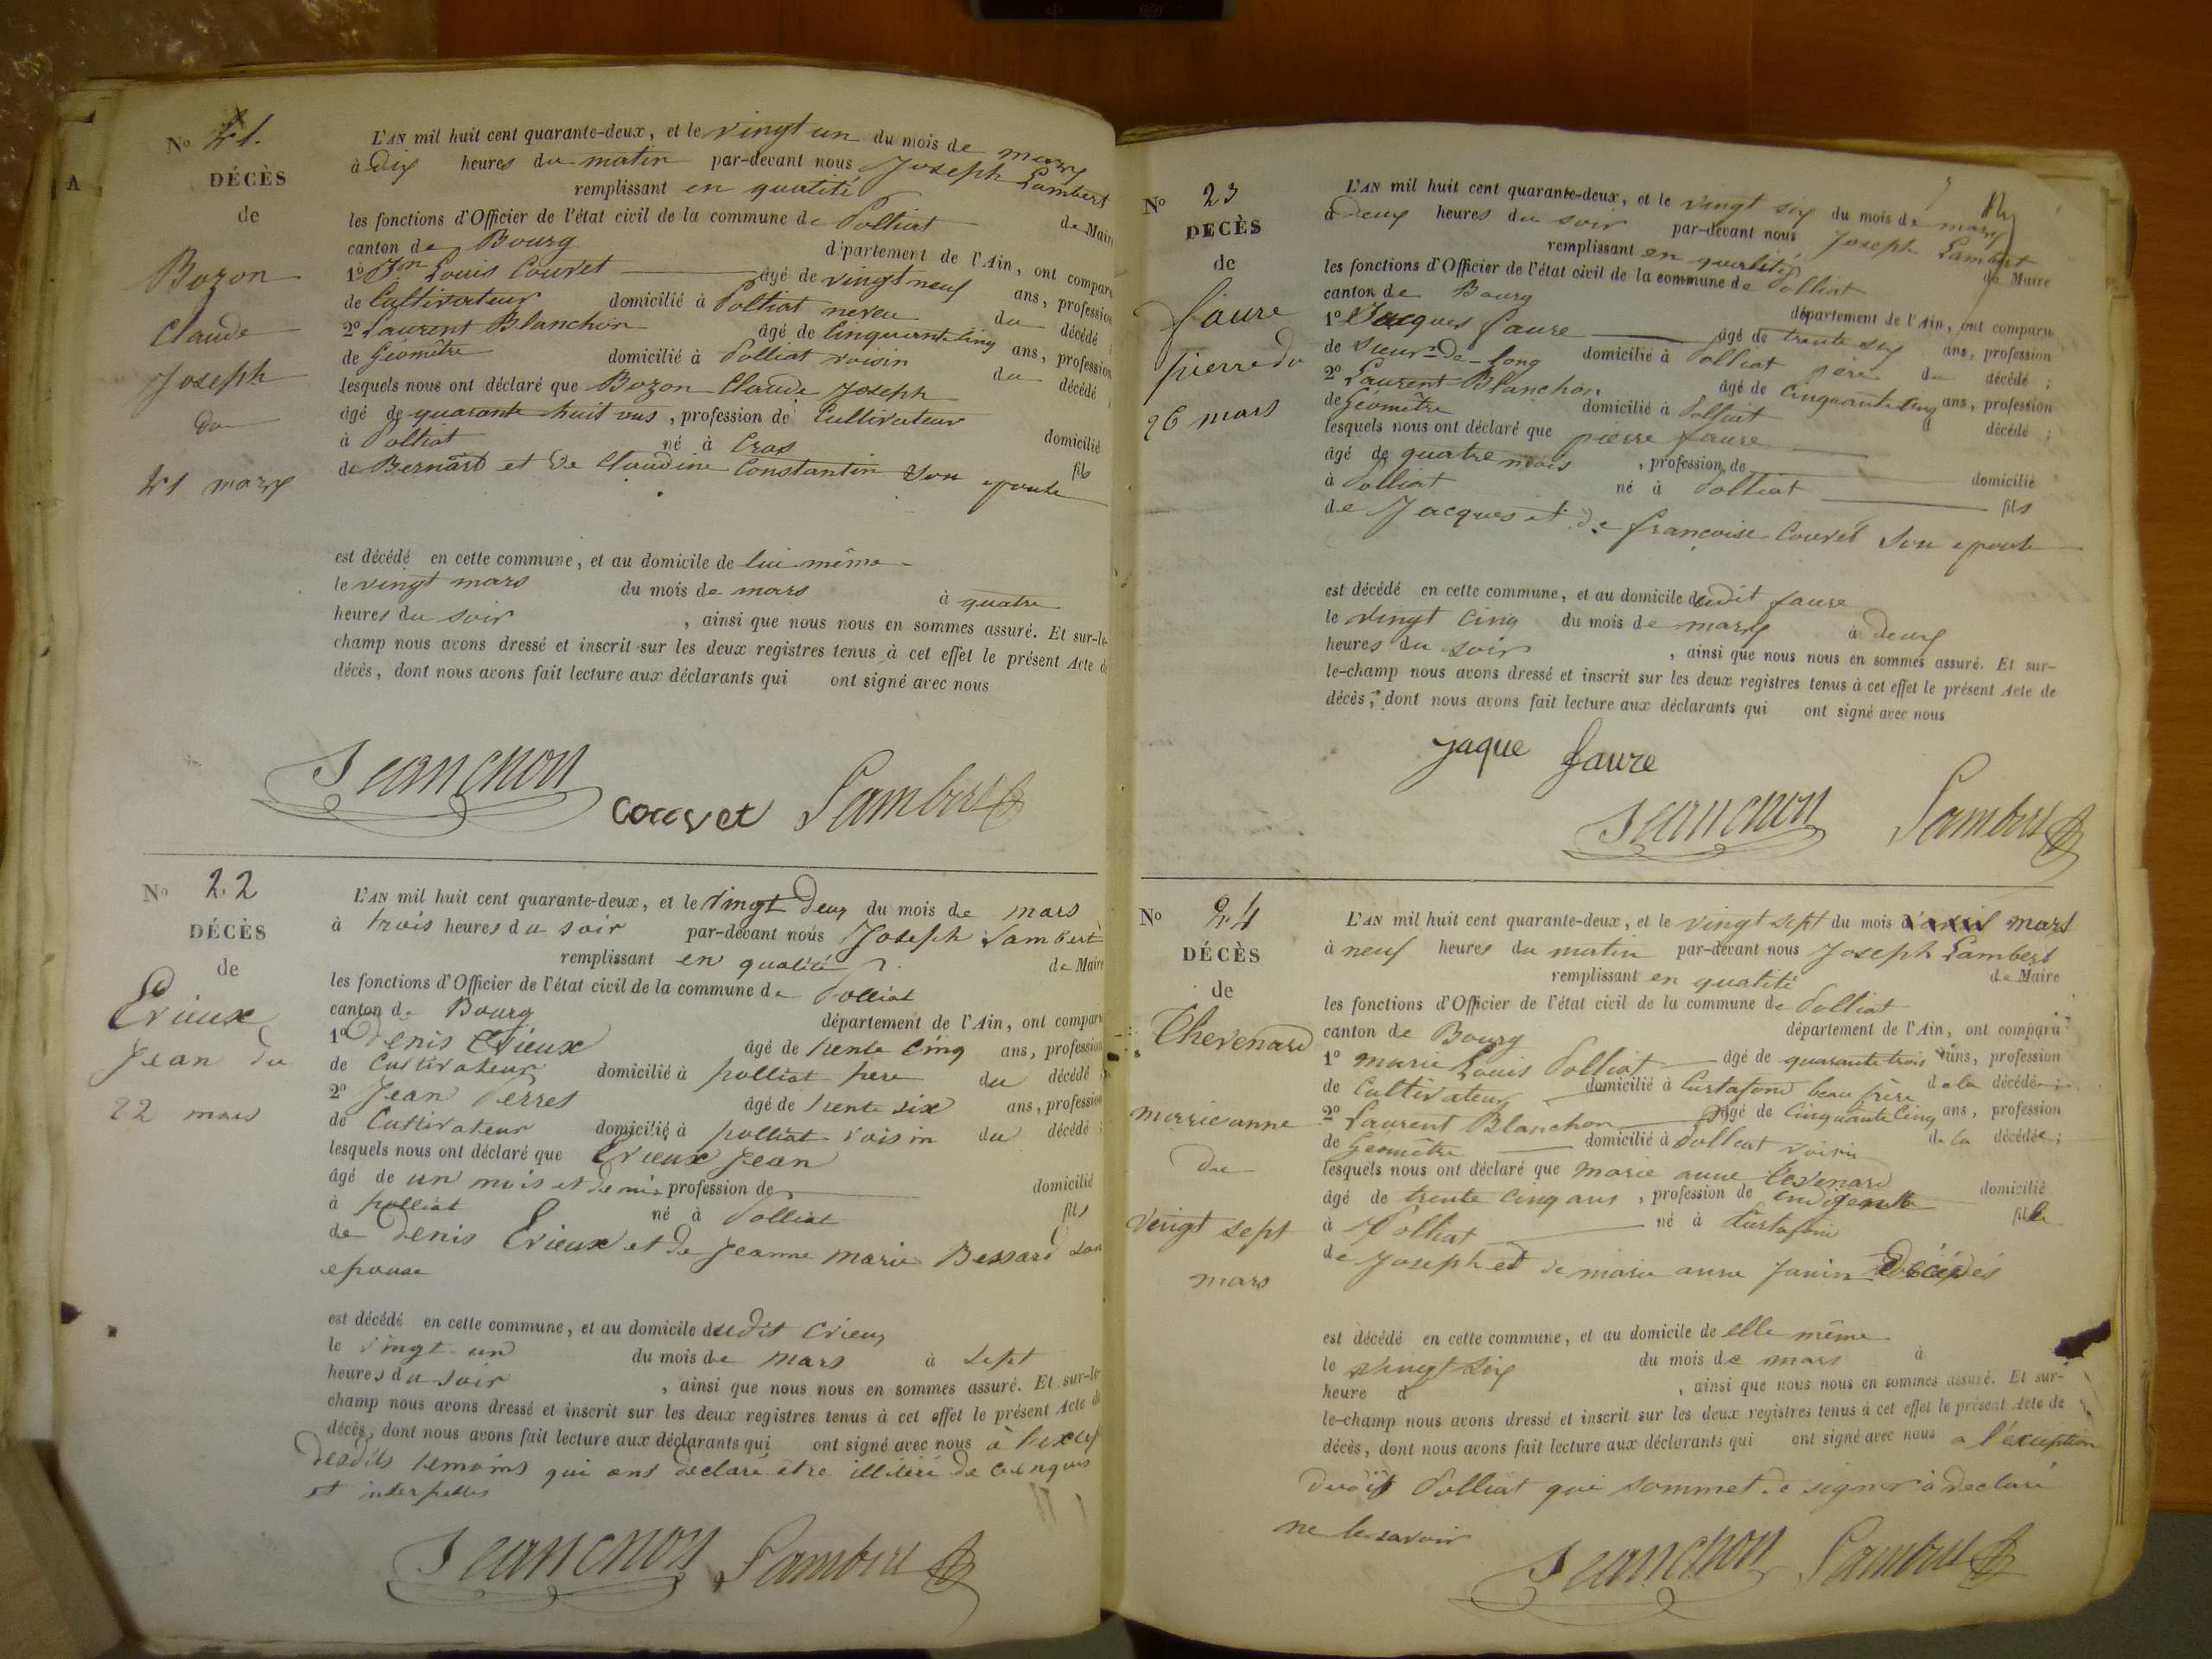 A
N° 21.
DÉCÈS
de
Bozon
Claude
Joseph
du
21 mars
L'AN mil huit cent quarante-deux, et le vingt un du mois de mars
à dix heures du matin par-devant nous Joseph Lambert
remplissant en qualité de Maire
les fonctions d'Officier de l'état civil de la commune de Polliat
canton de Bourg département de l'Ain, ont comparu
1° Jn Louis Couvet âgé de vingt neuf ans, profession
de Cultivateur domicilié à Polliat neveu du décédé ;
2° Laurent Blanchon âgé de Cinquante Cinq ans, profession
de Géomètre domicilié à Polliat voisin du décédé
lesquels nous ont déclaré que Bozon Claude Joseph
âgé de quarante huit ans, profession de Cultivateur domicilié
à Polliat né à Cras fils
de Bernard et de Claudine Constantin Son epouse
est décédé en cette commune, et au domicile de lui même
le vingt mars du mois de mars à quatre
heures du soir, ainsi que nous nous en sommes assuré. Et sur-le-
champ nous avons dressé et inscrit sur les deux registres tenus à cet effet le présent Acte de
décès, dont nous avons fait lecture aux déclarants qui ont signé avec nous
Blanchon couvet Lambert
N° 22
DÉCÈS
de
Erieux
Jean du
22 mars
L'AN mil huit cent quarante-deux, et le vingt deux du mois de mars
à trois heures du soir par-devant nous Joseph Lambert
remplissant en qualité de Maire
les fonctions d'Officier de l'état civil de la commune de Polliat
canton de Bourg département de l'Ain, ont comparu
1° denis Erieux âgé de trente cinq ans, profession
de Cultivateur domicilié à polliat pere du décédé ;
2° Jean Perret âgé de trente six ans, profession
de Cultivateur domicilié à polliat voisin du décédé ;
lesquels nous ont déclaré que Erieux Jean
âgé de un mois et demi profession de domicilié
à polliat né à Polliat fils
de Denis Erieux et de Jeanne Marie Bessard son
epouse
est décédé en cette commune, et au domicile dudit Erieux
le vingt un du mois de mars à sept
heures du soir, ainsi que nous nous en sommes assuré. Et sur-le-
champ nous avons dressé et inscrit sur les deux registres tenus à cet effet le présent Acte de
décès, dont nous avons fait lecture aux déclarants qui ont signé avec nous à
desdits temoins qui ont declaré être illiteré de ce enquis
et interpellés
Blanchon Lambert
N° 23
DECÈS
de
faure
pierre du
26 mars
L'AN mil huit cent quarante-deux, et le vingt six du mois de mars
à deux heures du soir par-devant nous Joseph Lambert
remplissant en qualité de Maire
les fonctions d'Officier de l'état civil de la commune de Polliat
canton de Bourg département de l'Ain, ont comparu
1° Jacques faure âgé de trente six ans, profession
de Sieur-de-long domicilié à Polliat père du décédé ;
2° Laurent Blanchon âgé de Cinquante Cinq ans, profession
de Géomètre domicilié à Polliat d décédé ;
lesquels nous ont déclaré que pierre faure
âgé de quatre mois, profession de domicilié
à Polliat né à Polliat fils
de Jacques et de francoise Couvet Son epouse
est décédé en cette commune, et au domicile dudit faure
le vingt cinq du mois de mars à deux
heures du soir, ainsi que nous nous en sommes assuré. Et sur-
le-champ nous avons dressé et inscrit sur les deux registres tenus à cet effet le présent Acte de
décès, dont nous avons fait lecture aux déclarants qui ont signé avec nous
jaque faure
Blanchon Lambert
N° 24
DÉCÈS
de
Thevenard
marie anne
du
vingt sept
mars
L'AN mil huit cent quarante-deux, et le vingt sept du mois d'avril mars
à neuf heures du matin par-devant nous Joseph Lambert
remplissant en qualité de Maire
les fonctions d'Officier de l'état civil de la commune de Polliat
canton de Bourg département de l'Ain, ont comparu
1° marie Louis Polliat âgé de quarante trois ans, profession
de Cultivateur domicilié à Curtafond beau frère de la décédée ;
2° Laurent Blanchon âgé de Cinquante Cinq ans, profession
de Géomètre domicilié à Polliat voisin de la décédée ;
lesquels nous ont déclaré que marie anne tevenard
âgé de trente cinq ans, profession de indigente domicilié
à Polliat né à Curtafond fille
de Joseph et de marie anne Janin Décédés
est décédé en cette commune, et au domicile de elle même
le vingt six du mois de mars à
heure d, ainsi que nous nous en sommes assuré. Et sur-
le-champ nous avons dressé et inscrit sur les deux registres tenus à cet effet le présent Acte de
décès, dont nous avons fait lecture aux déclarants qui ont signé avec nous a l'exception
dudit Polliat qui sommet de signer à declaré
ne le savoir
Blanchon Lambert